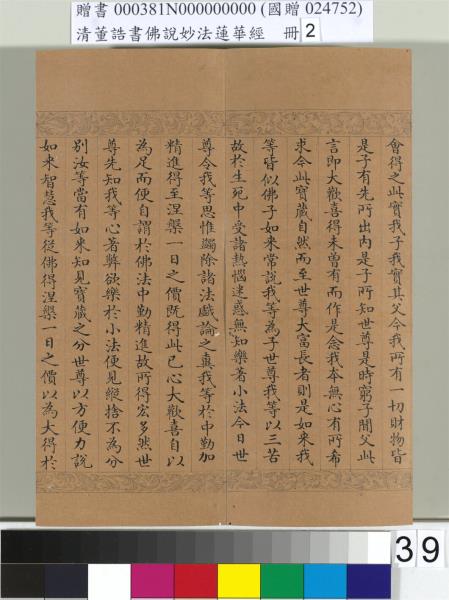 贈書 000381N000000000 (國贈 024752)
清董誥書佛說妙法蓮華經 冊 2
會得之此實我子我實其父今我所有一切財物皆
是子有先所出內是子所知世尊是時窮子聞父此
言即大歡喜得未曾有而作是念我本無心有所希
求今此寶藏自然而至世尊大富長者則是如來我
等皆似佛子如來常說我等為子世尊我等以三苦
故於生死中受諸熱惱迷惑無知樂著小法今日世
尊令我等思惟蠲除諸法戲論之糞我等於中勤加
精進得至涅槃一日之價既得此已心大歡喜自以
為足而便自謂於佛法中勤精進故所得宏多然世
尊先知我等心著弊欲樂於小法便見縱捨不為分
別汝等當有如來知見寶藏之分世尊以方便力說
如來智慧我等從佛得涅槃一日之價以為大得於
39